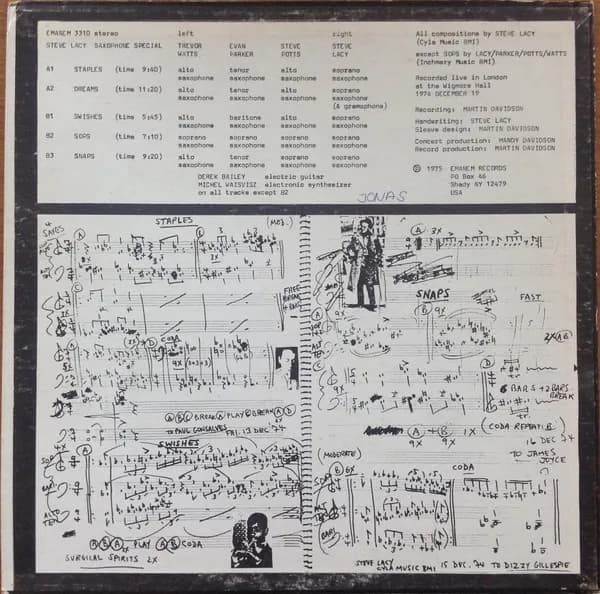 EMANEM 3310 stereo left right
STEVE LACY SAXOPHONE SPECIAL TREVOR WATTS EVAN PARKER STEVE POTTS STEVE LACY
A1 STAPLES (time 9:40) alto saxophone tenor saxophone alto saxophone soprano saxophone
A2 DREAMS (time 11:20) alto saxophone tenor saxophone alto saxophone soprano saxophone (& gramophone)
B1 SWISHES (time 5:45) alto saxophone baritone saxophone alto saxophone soprano saxophone
B2 SOPS (time 7:10) soprano saxophone soprano saxophone soprano saxophone soprano saxophone
B3 SNAPS (time 9:20) alto saxophone tenor saxophone soprano saxophone soprano saxophone
DEREK BAILEY electric guitar
MICHEL WAISVISZ electronic synthesizer
on all tracks except B2
JONAS
All compositions by STEVE LACY
(Cyla Music BMI)
except SOPS by LACY/PARKER/POTTS/WATTS
(Inchmery Music BMI)
Recorded live in London
at the Wigmore Hall
1974 DECEMBER 19
Recording: MARTIN DAVIDSON
Handwriting: STEVE LACY
Sleeve design: MARTIN DAVIDSON
Concert production: MANDY DAVIDSON
Record production: MARTIN DAVIDSON
℗ 1975 EMANEM RECORDS
PO Box 46
Shady NY 12479
USA
4 SAXES
STAPLES
(MOD.)
A
B
3
C
FREE
BREAK
D CODA
A B C BREAK A PLAY C BREAK A D
TO PAUL GONSALVES FRI. 13 DEC. 74
SWISHES
A
SOP
BARI
ALTO
TEN
A B A PLAY A B CODA
2X
SURGICAL SPIRITS 2X
A 3X
SNAPS
FAST
A 9X
B 9X
2X (AB)
SOP
ALT
TEN
C
9X
D
6 BARS + 2 BARS
BREAK
A + B 1X
9X 9X
(CODA-REPEAT B)
16 DEC 74
TO JAMES
JOYCE
(MODERATE)
B 6X
CODA
SOP
ALT
TEN
BARI
STEVE LACY
CYLA MUSIC BMI
15 DEC. 74 TO DIZZY GILLESPIE